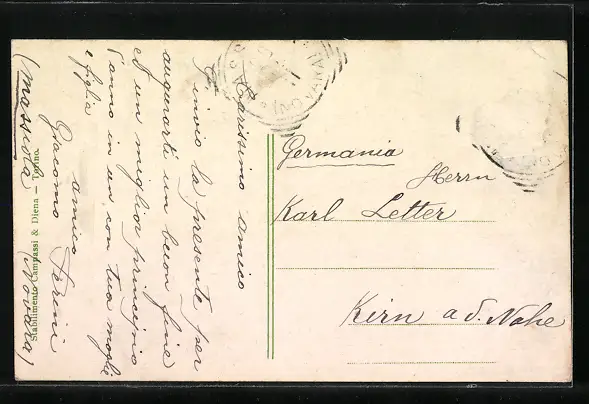 Carissimo amico
T'invio la presente per
augurarti un buon fine
et un miglior principio
d'anno in un con tua moglie
e figlia
amico
Giacomo
(Massiola (Novara)
Stabilimento Campassi & Diena — Torino.
Germania
Herrn
Karl Letter
Kirn a. d. Nahe